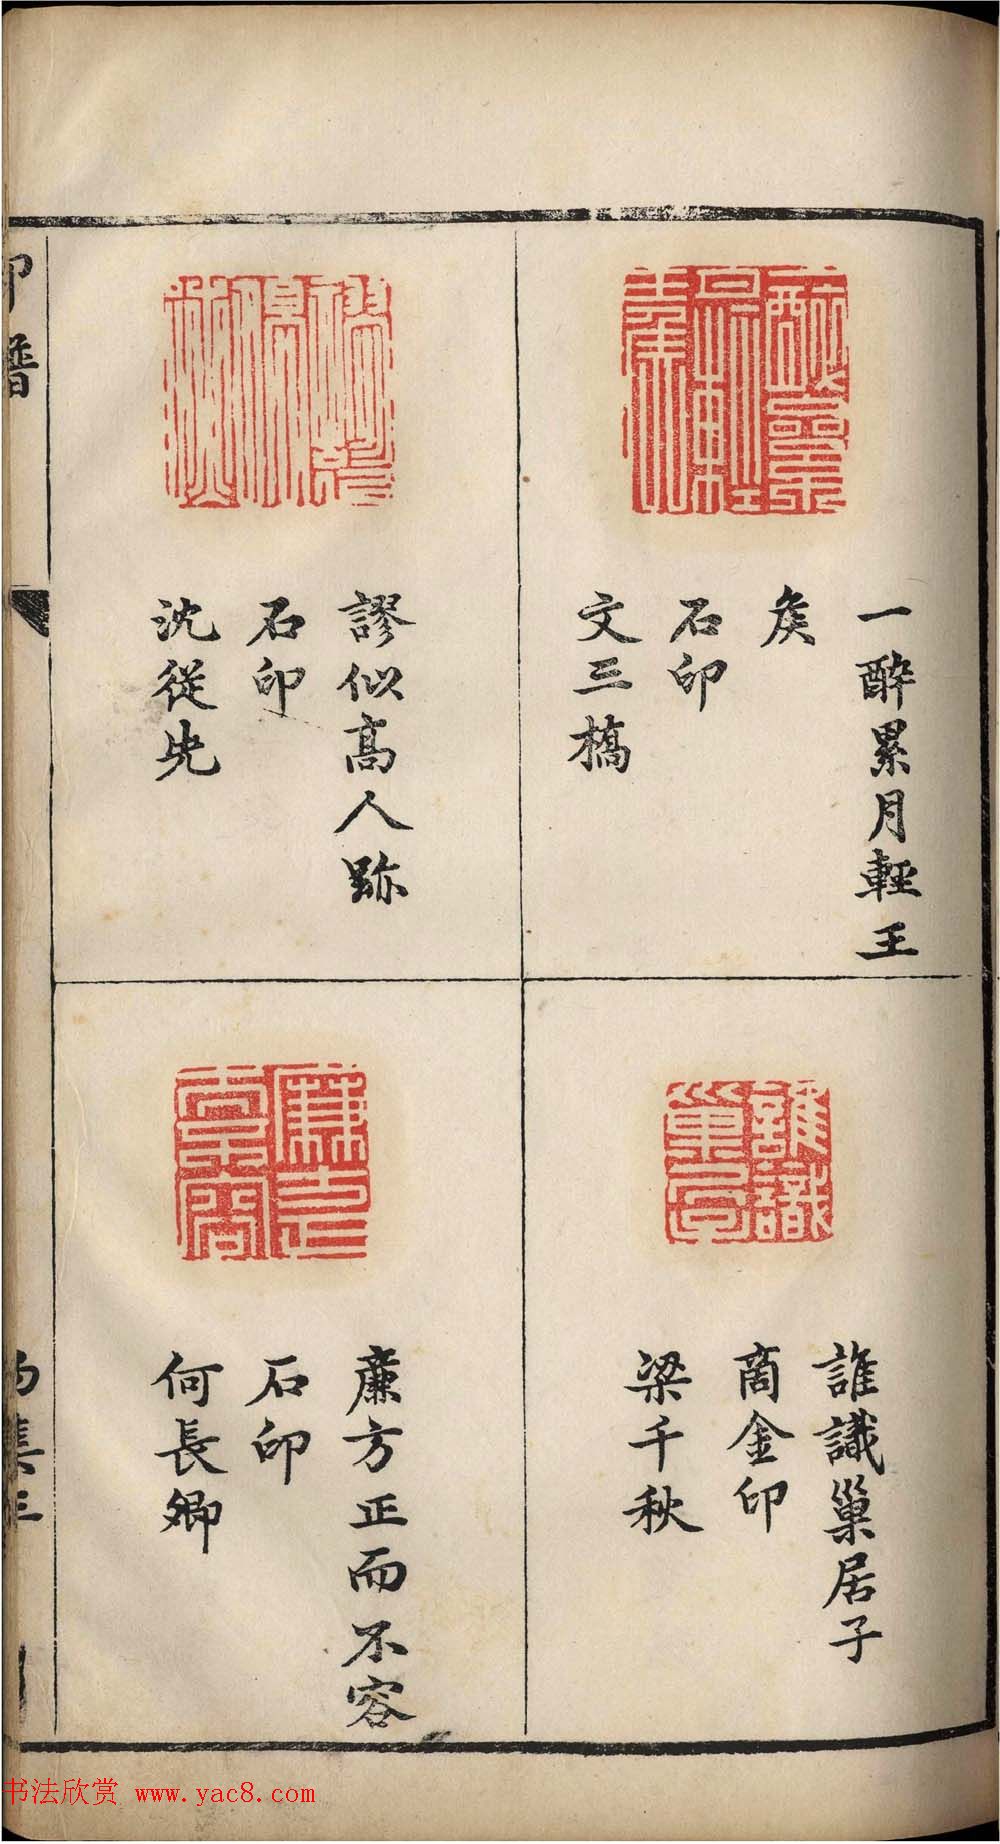 一醉累月輕王
矦
石印
文三橋
謬似高人跡
石印
沈從先
誰識巢居子
商金印
梁千秋
廉方正而不容
石印
何長卿
印譜
书法欣赏 www.yac8.com